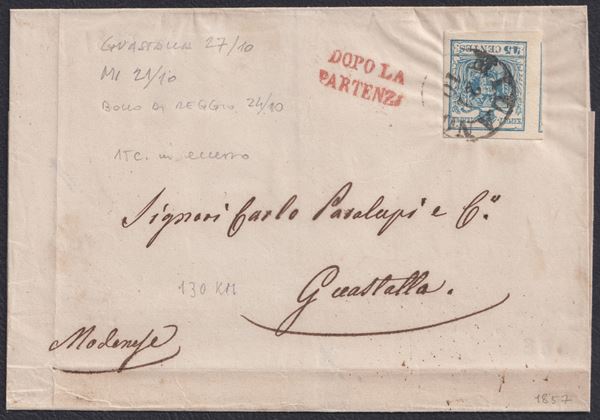 GUASTALLA 27/10
MI 21/10
BOLLO DI REGGIO 24/10
15c. in eccesso
DOPO LA
PARTENZA
45 CENTES
MILANO
Signori Carlo Paralupi e C.º
Guastalla.
130 KM
Modenese
1857